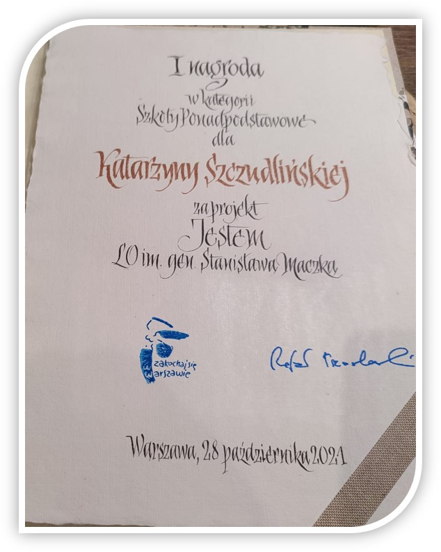 I nagroda
w kategorii
Szkoły Ponadpodstawowe
dla
Katarzyny Szczudlińskiej
za projekt
Jestem
LO im. gen. Stanisława Maczka
zakochaj się
w warszawie
Warszawa, 28 października 2021